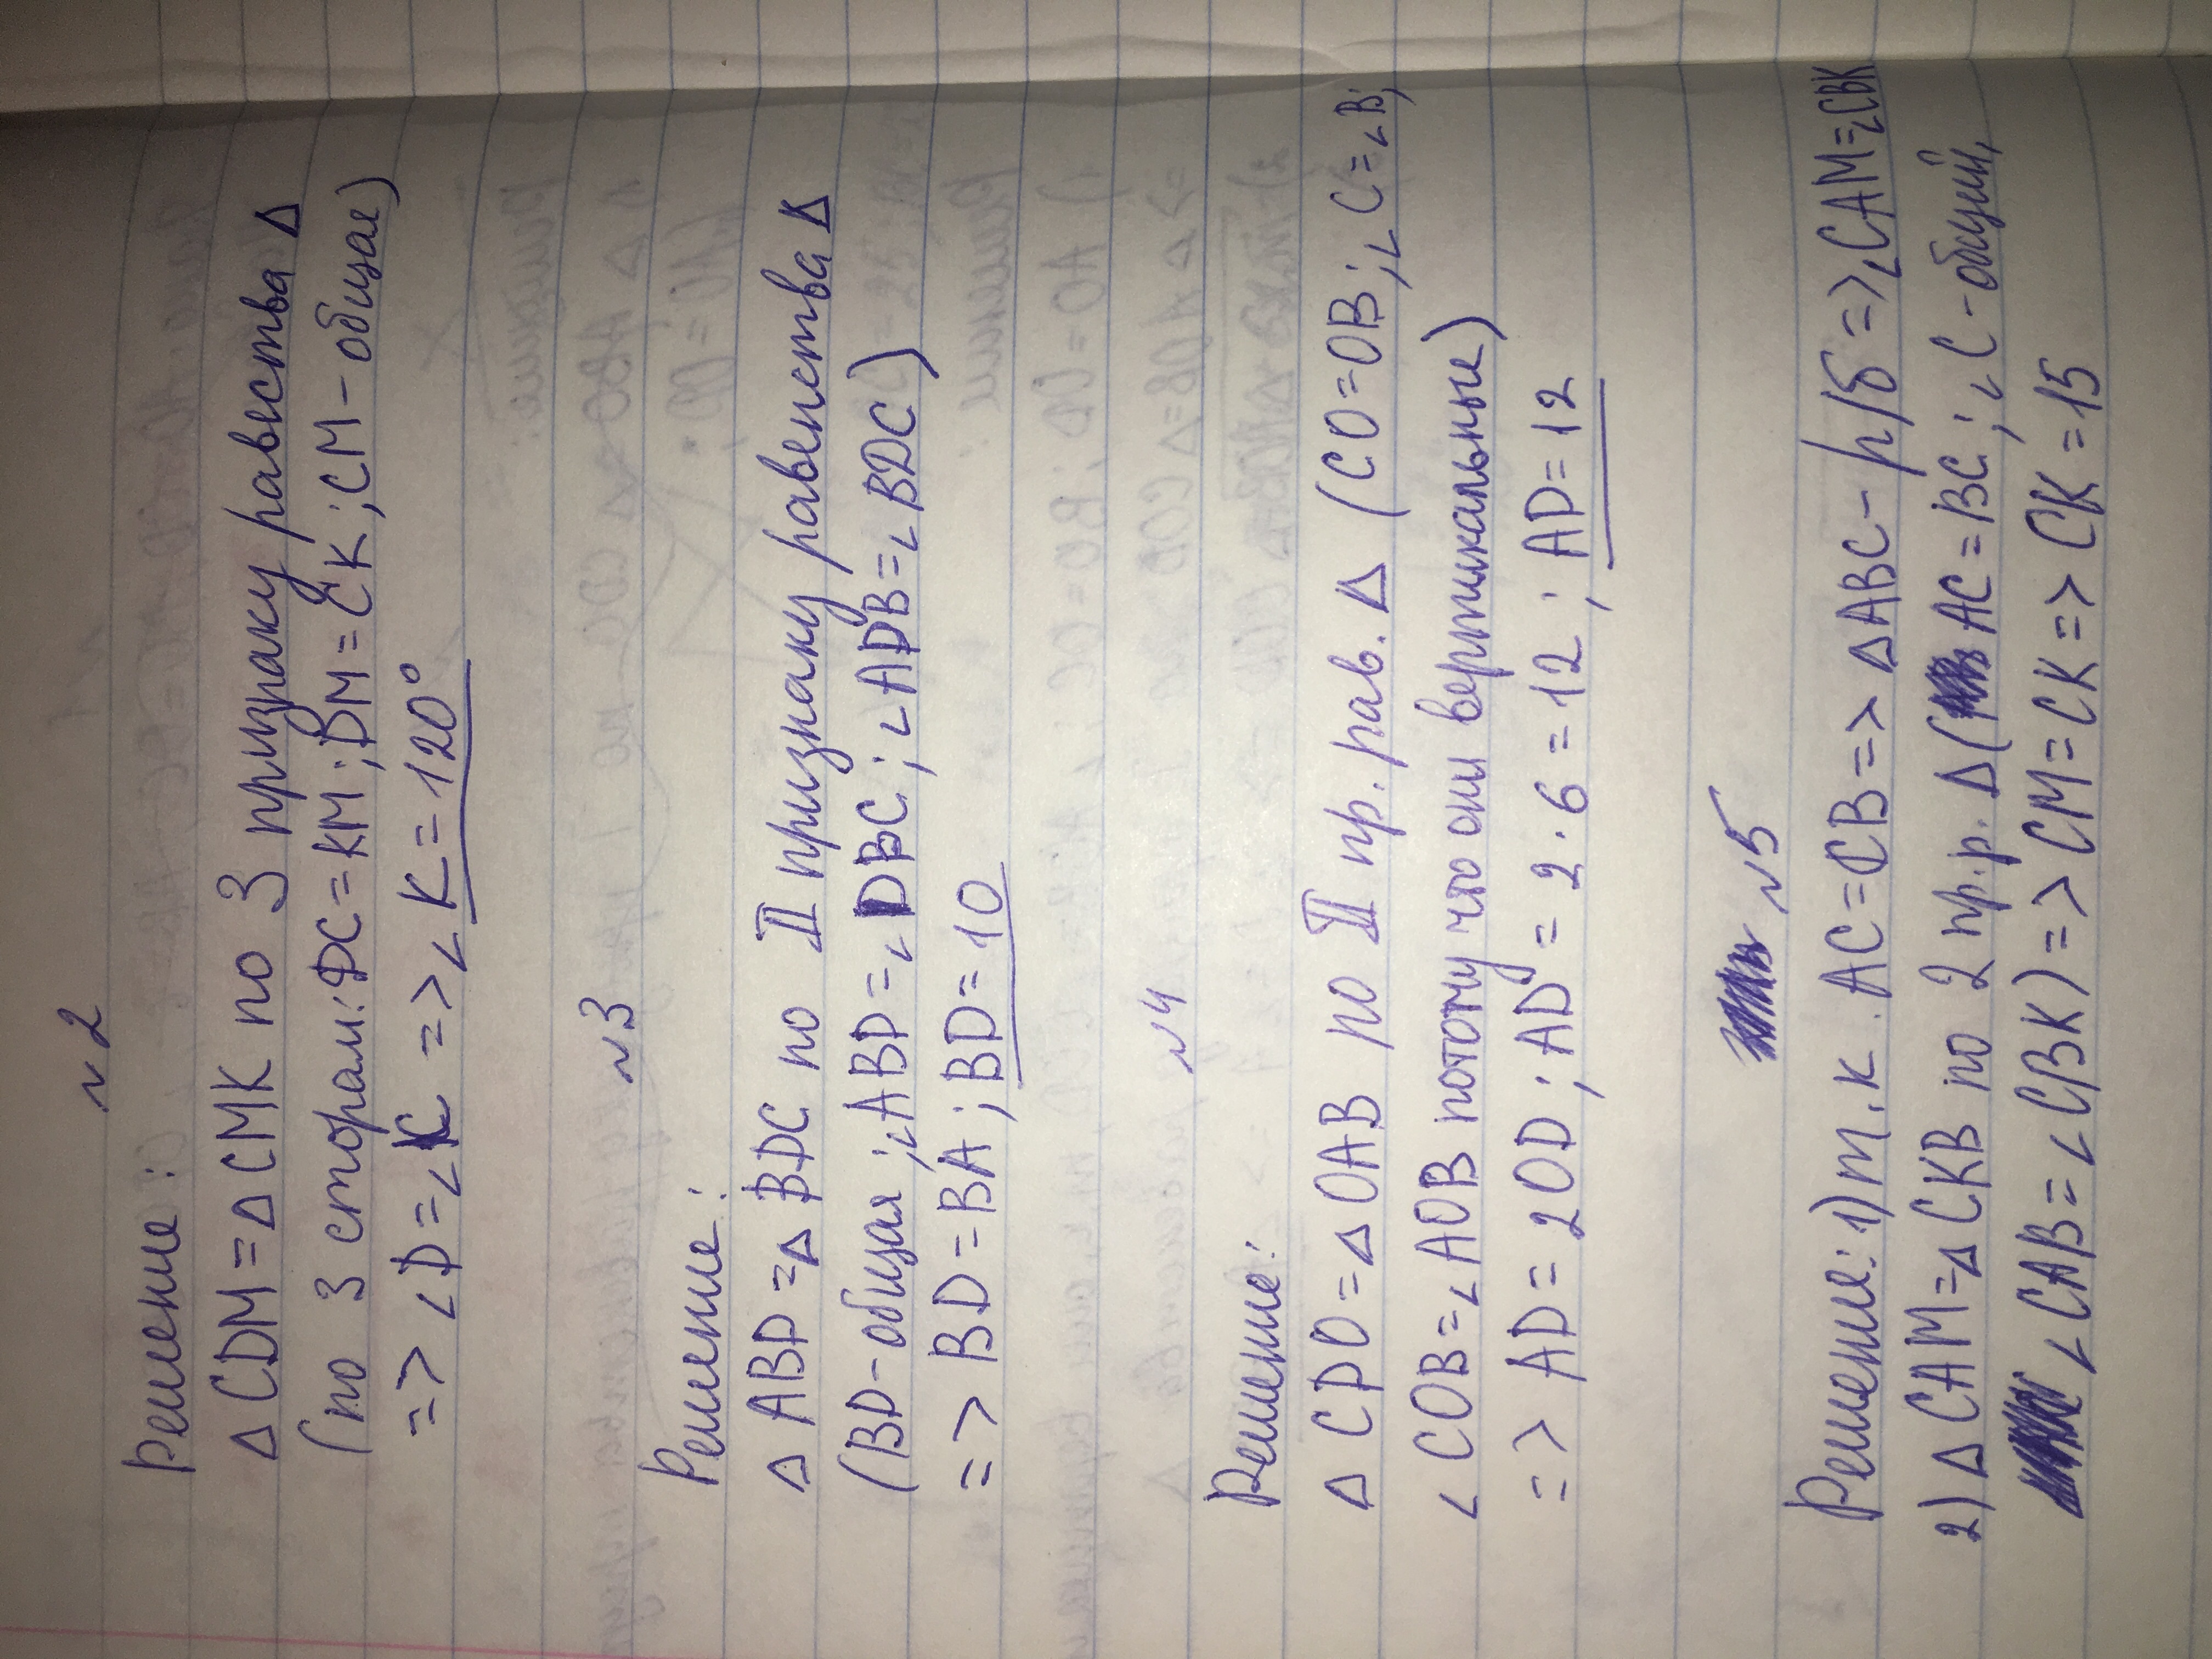 №2
Решение:
∆ CDM = ∆ CMK по 3 признаку равества ∆
(по 3 сторам: DC = KM; DM = CK; CM - общае)
=> ∠D = ∠K => ∠K = 120°
№3
Решение:
∆ ABD = ∆ BDC по II признаку равенства ∆
(BD - общая; ∠ABD = ∠DBC; ∠ADB = ∠BDC)
=> BD = BA; BD = 10
№4
Решение:
∆ CDO = ∆ OAB по II пр. рав. ∆ (CO = OB; ∠C = ∠B;
∠COB = ∠AOB потому что они вертикальные)
=> AD = 2OD; AD = 2 · 6 = 12; AD = 12
№5
Решение: 1) т.к. AC = CB => ∆ABC - р/б => ∠CAM = ∠CBK
2) ∆ CAM = ∆ CKB по 2 пр.р. ∆ ( AC = BC; ∠C - общий,
∠CAB = ∠CBK) => CM = CK => CK = 15